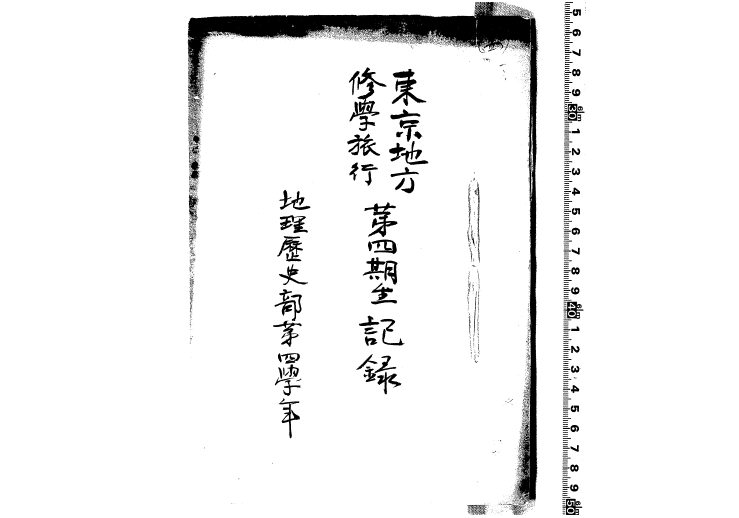 東京地方
修學旅行
第四期生 記録
地理歷史部第四學年
5 6 7 8 9 30 1 2 3 4 5 6 7 8 9 40 1 2 3 4 5 6 7 8 9 50